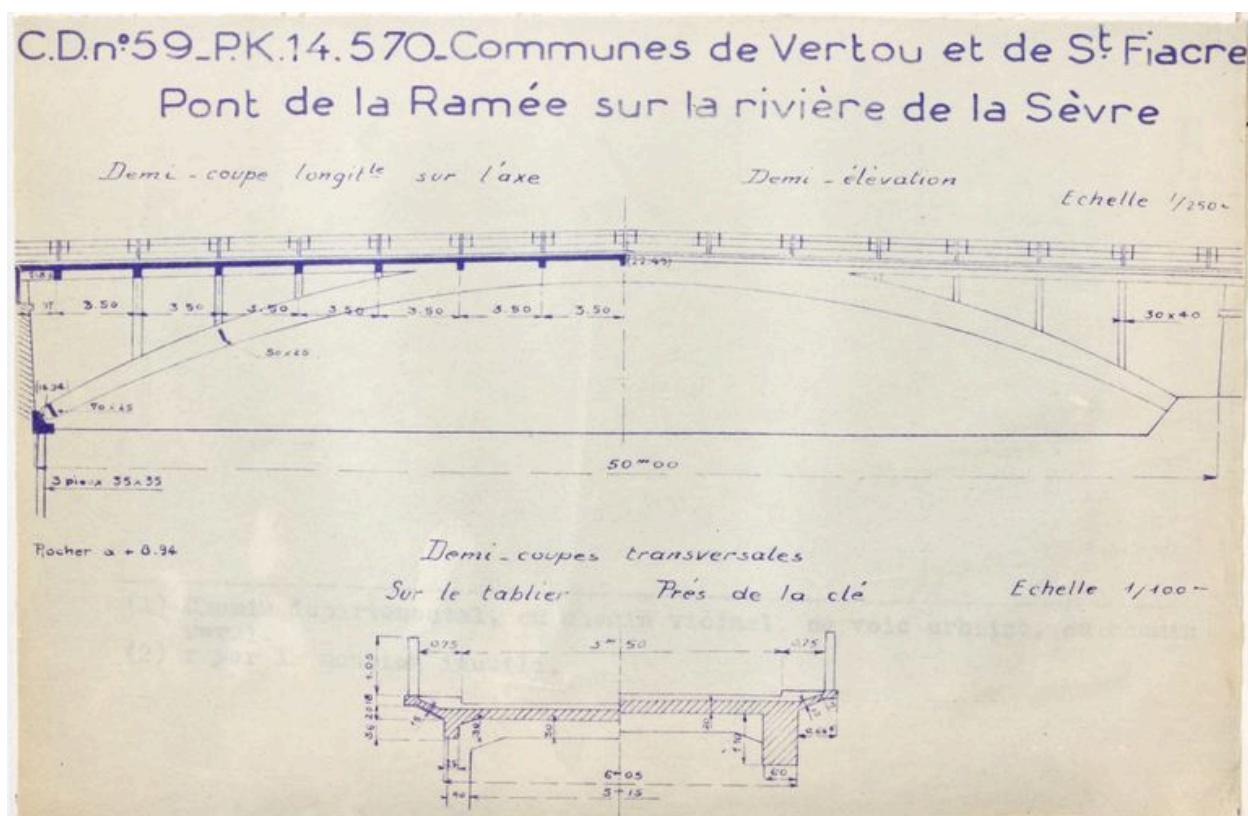 C.D.n°59_P.K.14.570_Communes de Vertou et de St Fiacre
Pont de la Ramée sur la rivière de la Sèvre
Demi-coupe longitle sur l'axe
Demi-élévation
Echelle 1/250
(22.49)
3.50 3.50 3.50 3.50 3.50 3.50 3.50
30x40
50x65
70x45
50m00
3 pieux 35x35
Rocher a + 8.94
Demi-coupes transversales
Sur le tablier
Prés de la clé
Echelle 1/100
0.75
5m50
0.75
1.05
30
30
20
1.10
60
6m05
40
5m15